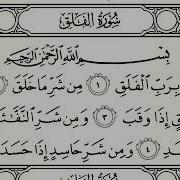 سُورَةُ الْفَلَقِ
بِسْمِ اللَّهِ الرَّحْمَٰنِ الرَّحِيمِ
بِرَبِّ الْفَلَقِ ١ مِن شَرِّ مَا خَلَقَ
إِذَا وَقَبَ ٣ وَمِن شَرِّ
٤ وَمِن شَرِّ حَاسِدٍ إِذَا حَسَدَ
سُورَةُ